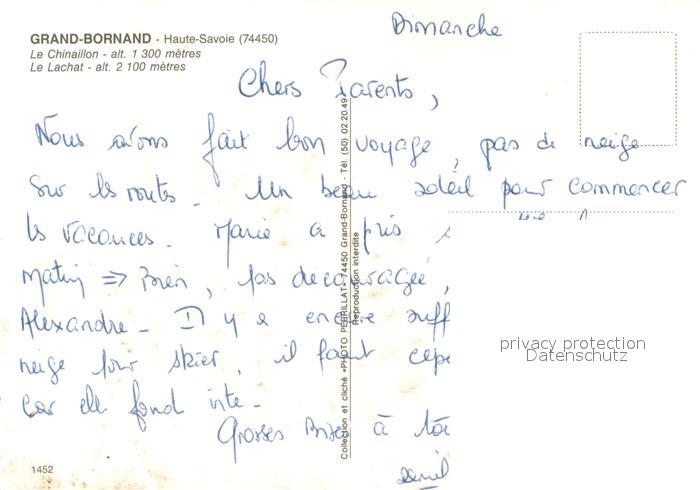 GRAND-BORNAND - Haute-Savoie (74450)
Le Chinaillon - alt. 1 300 mètres
Le Lachat - alt. 2 100 mètres
Dimanche
Chers Parents,
Nous avons fait bon voyage, pas de neige
sur les routes. Un beau soleil pour commencer
les vacances. Marie a pris
matin => Bien, pas decouragée,
Alexandre. Il y a encore suff
neige pour skier, il faut cepe
car elle fond vite.
Grosses Bises à
Collection et cliché «PHOTO PERRILLAT» 74450 Grand-Bornand - Tél. (50) 02.20.49
Reproduction interdite
privacy protection
Datenschutz
1452